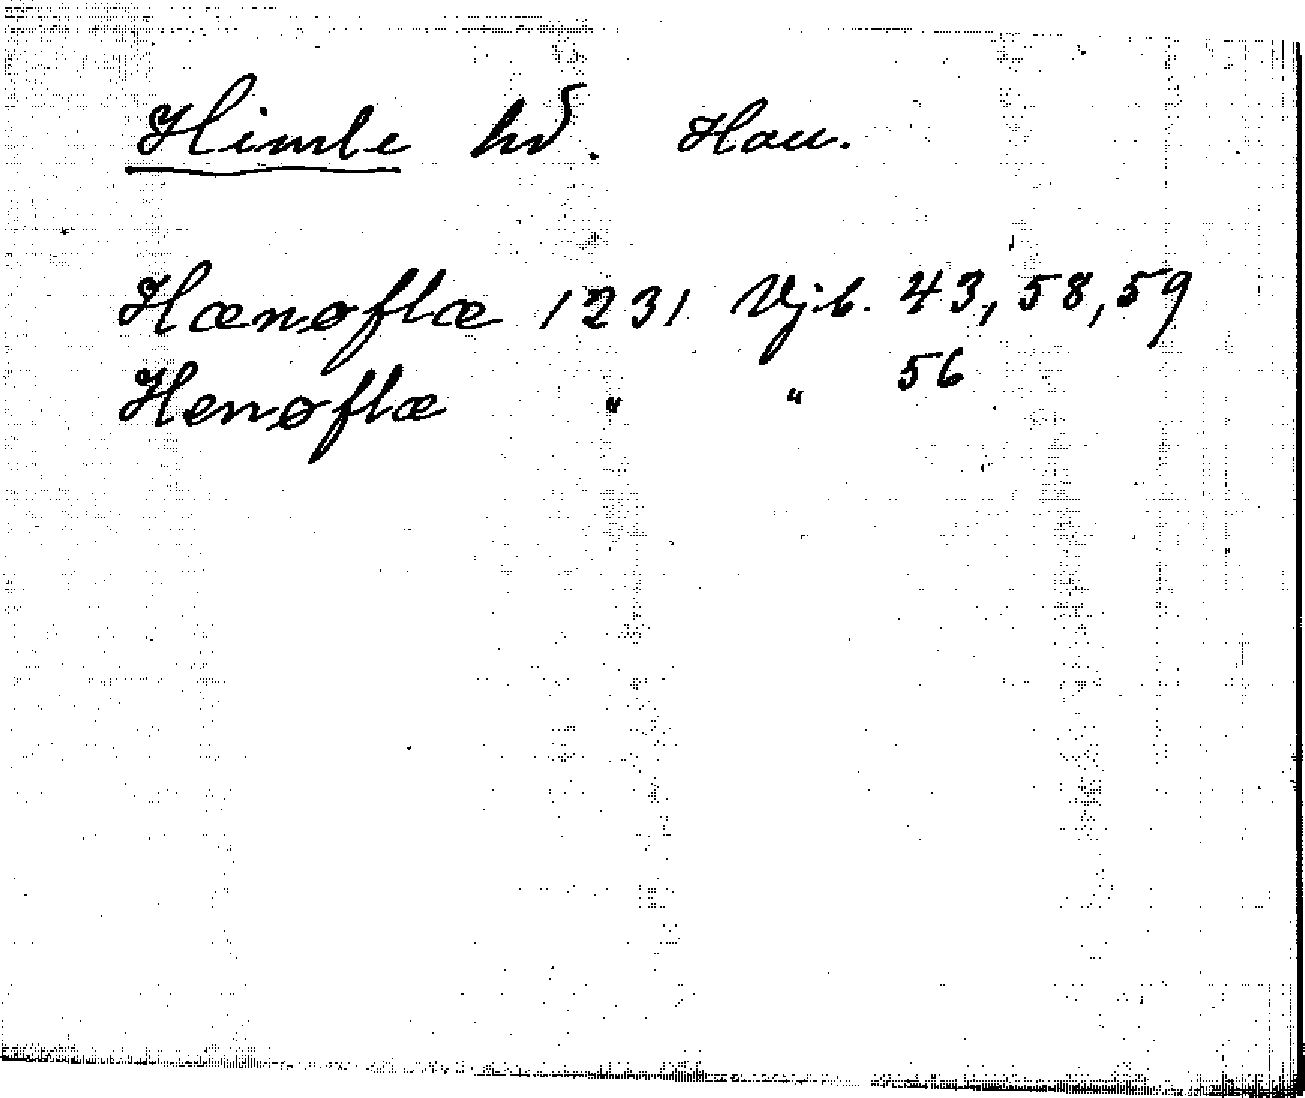 Himle hd. Hall.
Hænøflæ 1231 Vjb. 43, 58, 59
Henøflæ " " 56